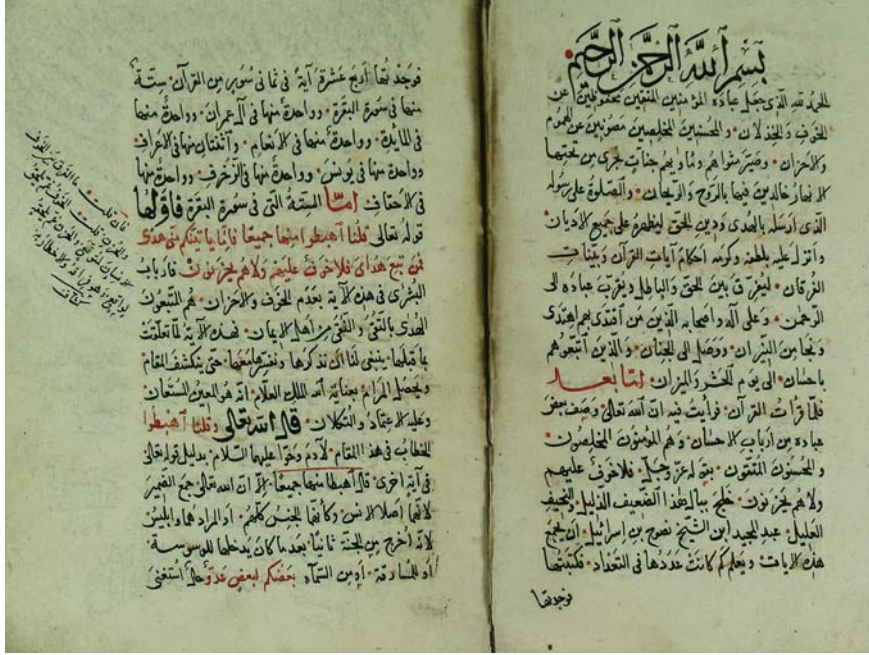 بسم الله الرحمن الرحيم
الحمد لله الذى جعل عباده المؤمنين المتقين محفوظين عن
الخوف والخذلان والمحسنين المخلصين مصونين عن الهموم
والاحزان وصير مثواهم ومأويهم جنات تجرى من تحتها
الانهار خالدين فيها بالروح والريحان والصلوة على رسوله
الذى ارسله بالهدى ودين الحق ليظهره على جميع الاديان
وانزل عليه بلطفه وكرمه احكام آيات القرآن وبينات
الفرقان ليفرق بين الحق والباطل ويقرب عباده الى
الرحمن وعلى آله واصحابه الذين من اقتدى بهم اهتدى
ونجا من النيران ووصل الى الجنان والذين اتبعوهم
باحسان الى يوم الحشر والميزان اما بعد
فلما قرأت القرآن فرأيت فيه ان الله تعالى وصف بعض
عباده من ارباب الاحسان وهم المؤمنون المخلصون
والمحسنون المتقون بقوله عز وجل فلا خوف عليهم
ولاهم يحزنون خلج ببال هذا الضعيف الذليل والنحيف
العليل عبد المجيد ابن الشيخ نصوح بن اسرائيل ان يجمع
هذه الايات ويعلم كم كانت عددها فى التعداد فكتبتها
فوجدتها
فوجدتها اربع عشرة آية فى ثمانى سور من القرآن ستة
منها فى سورة البقرة وواحدة منها فى آل عمران وواحدة منها
فى المايدة وواحدة منها فى الانعام واثنتان منها فى الاعراف
وواحدة منها فى يونس وواحدة منها فى الزخرف وواحدة منها
فى الاحقاف اما الستة التى فى سورة البقرة فاولها
قوله تعالى قلنا اهبطوا منها جميعا فاما ياتينكم منى هدى
فمن تبع هداى فلا خوف عليهم ولاهم يحزنون فارباب
البشرى فى هذه الآية بعدم الخوف والاحزان هم المتبعون
الهدى بالتقى والنقى من اهل الايمان فهذه الآية لما تعلقت
بما قبلها ينبغى لنا ان نذكرها ونفسرها معها حتى ينكشف المقام
ويحصل المرام بعناية الله الملك العلام انه هو المعين المستعان
وعليه الاعتماد والتكلان قال الله تعالى وقلنا اهبطوا
الخطاب فى هذ المقام لآدم وحوا عليهما السلام بدليل قوله تعالى
فى آية اخرى قال اهبطا منها جميعا الا ان الله تعالى جمع الضمير
لانهما اصلا الانس وكأنهما الجنس كلهم او المراد هما وابليس
لانه اخرج من الجنة ثانيا بعدما كان يدخلها للوسوسة
او للمسارقة او من السماء بعضكم لبعض عدو حال استغنى
فان قلت ما الفرق بين الخوف
والحزن قلت الخوف غم يلحق